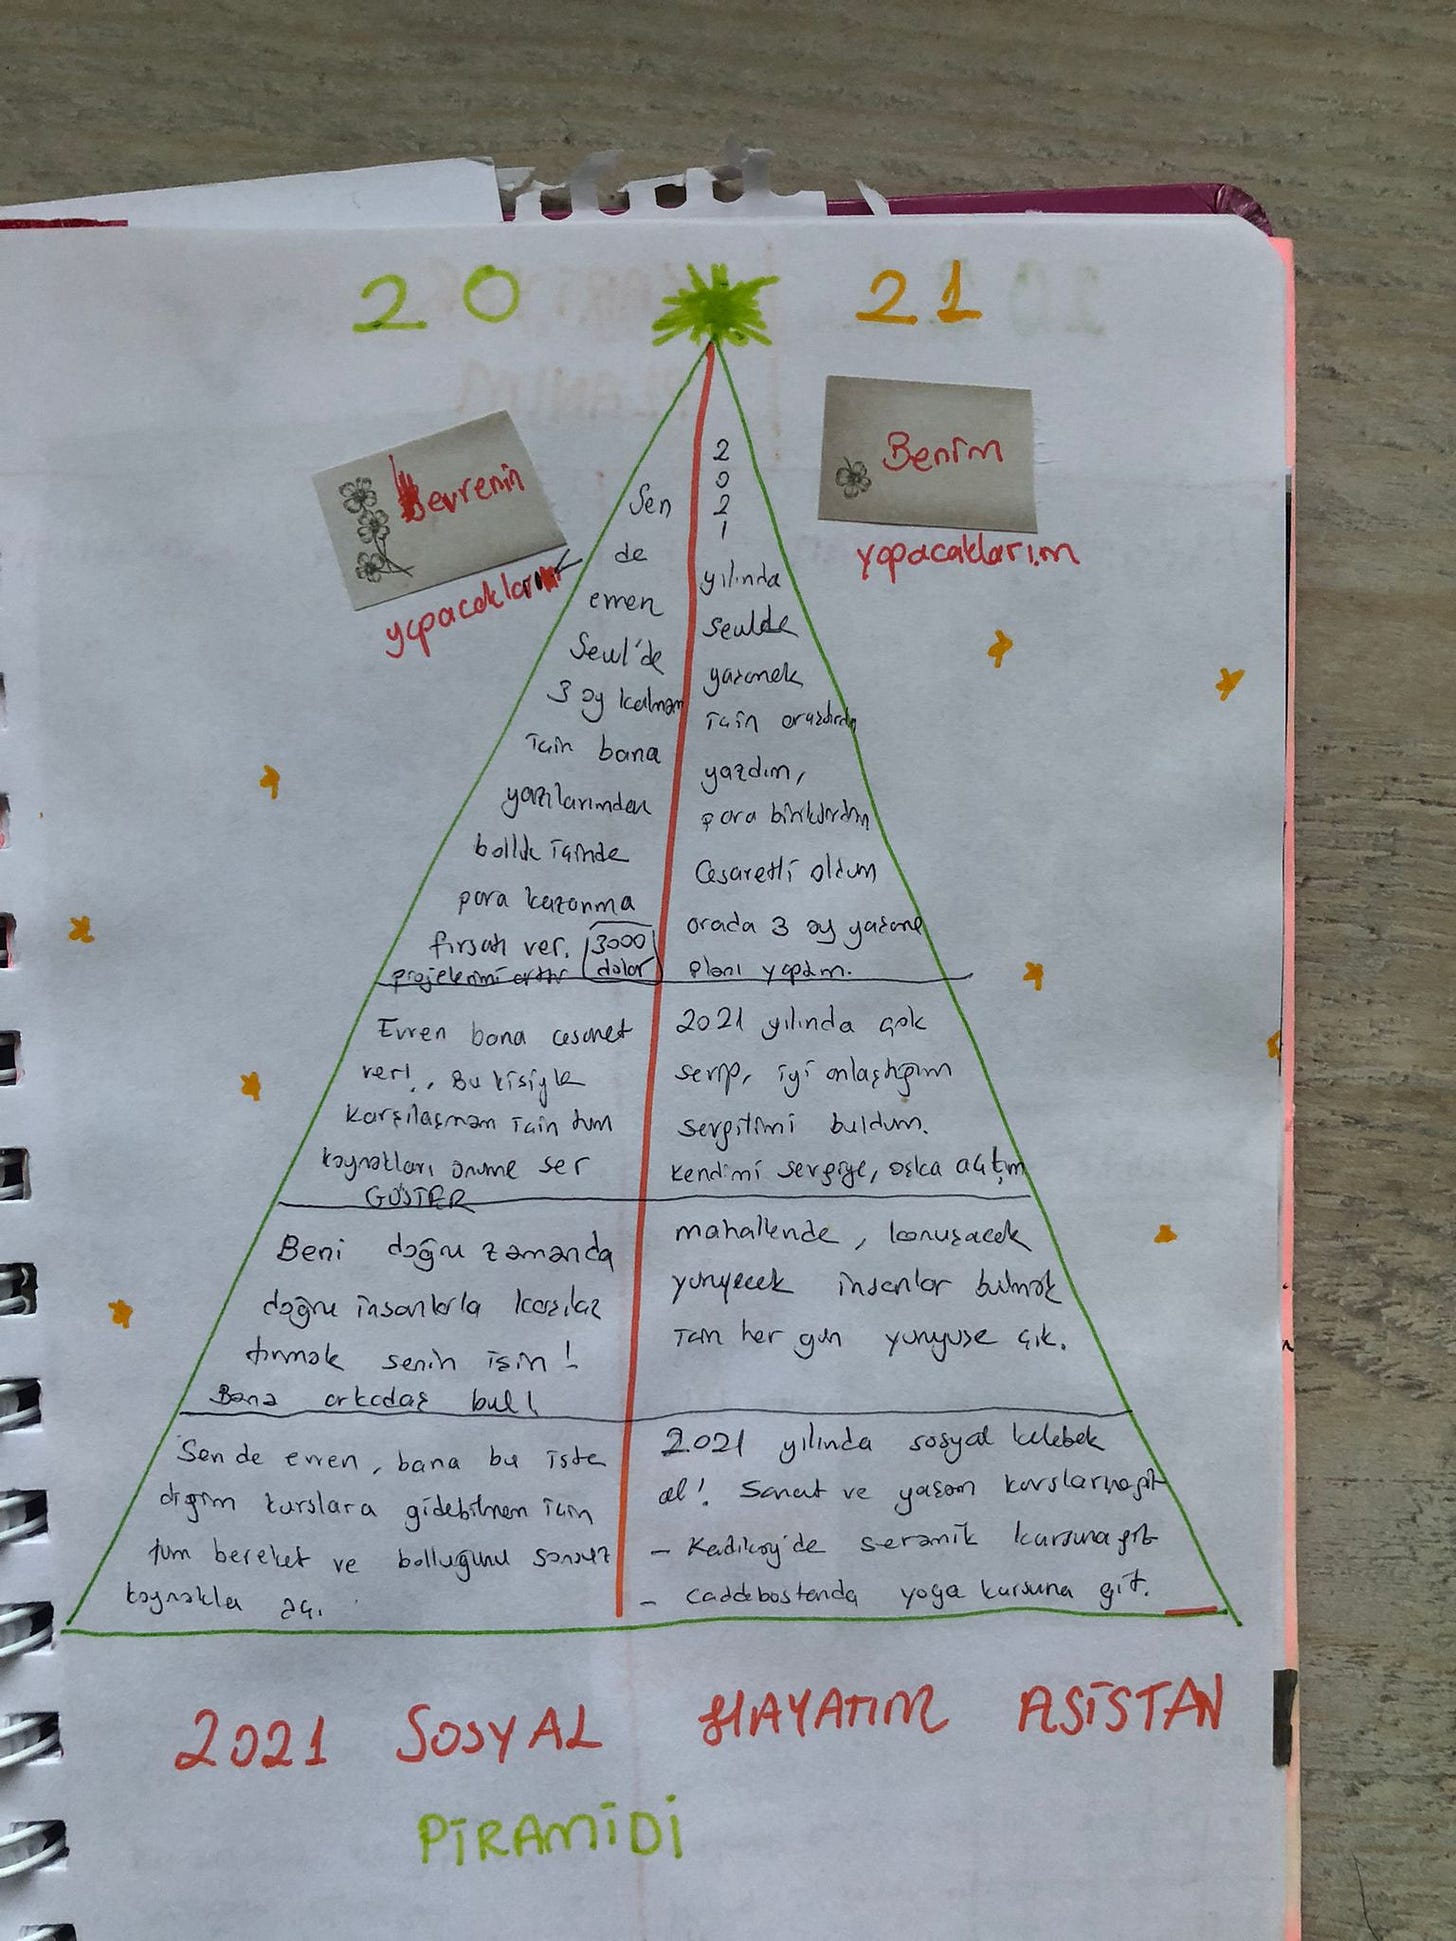 20 21
evrenin
yapacakları
Benim
yapacaklarım
Sen
de
evren
Seul'de
3 ay kalmam
için bana
yazılarımdan
bolluk içinde
para kazanma
fırsatı ver. 3000
dolar
projelerimi arttır
2
0
2
1
yılında
seulde
yaşamak
için araştırdım
yazdım,
para biriktirdim
Cesaretli oldum
orada 3 ay yaşama
planı yaptım.
Evren bana cesaret
ver!, Bu kişiyle
karşılaşmam için tüm
kaynakları önüme ser
GÖSTER
2021 yılında çok
sevip, iyi anlaştığım
sevgilimi buldum.
kendimi sevgiye, aşka açtım
Beni doğru zamanda
doğru insanlarla karşılaş
tırmak senin işin!
Bana arkadaş bul!
mahallende, konuşacak
yürüyecek insanlar bulmak
için her gün yürüyüşe çık.
Sen de evren, bana bu iste
diğim kurslara gidebilmem için
tüm bereket ve bolluğunu sonsuz
kaynakla aç.
2021 yılında sosyal kelebek
ol! Sanat ve yaşam kurslarına git
- Kadıköy'de seramik kursuna git
- Caddebostanda yoga kursuna git.
2021 SOSYAL HAYATIM ASİSTAN
PİRAMİDİ